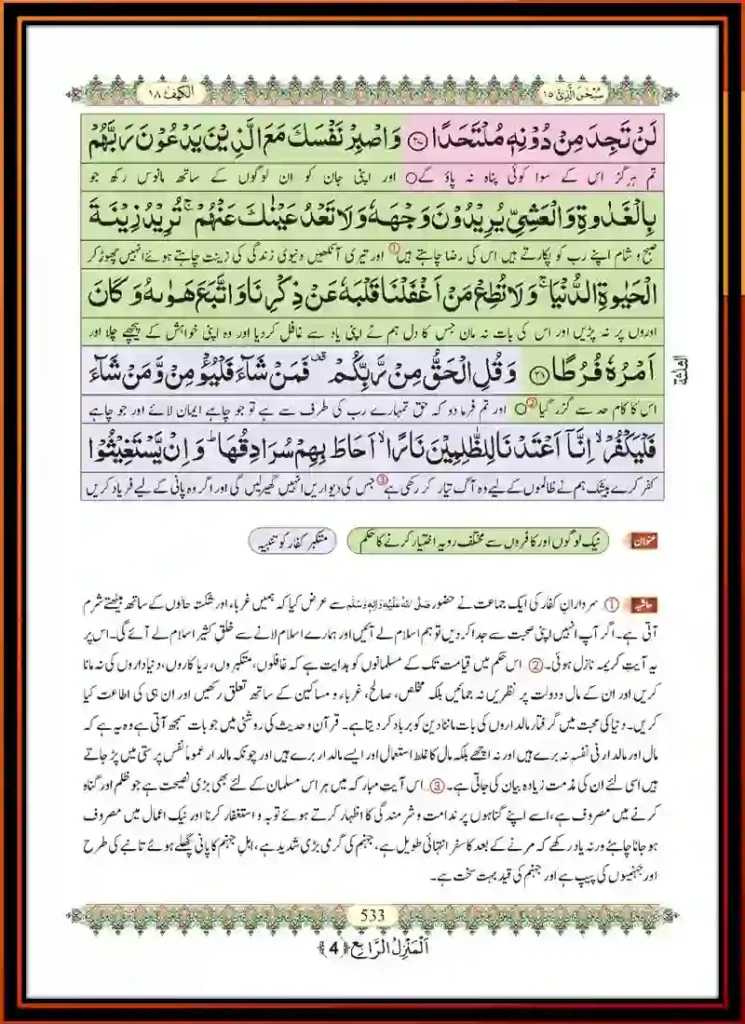 سُبْحٰنَ الَّذِیْۤ ١٥
الکهف ١٨
لَنْ تَجِدَ مِنْ دُوْنِهٖ مُلْتَحَدًا ﴿۲۷﴾ وَاصْبِرْ نَفْسَكَ مَعَ الَّذِیْنَ یَدْعُوْنَ رَبَّهُمْ
تم ہرگز اس کے سوا کوئی پناہ نہ پاؤ گے اور اپنی جان کو ان لوگوں کے ساتھ مانوس رکھ جو
بِالْغَدٰوةِ وَالْعَشِیِّ یُرِیْدُوْنَ وَجْهَهٗ وَلَا تَعْدُ عَیْنٰكَ عَنْهُمْ ۚ تُرِیْدُ زِیْنَةَ
صبح و شام اپنے رب کو پکارتے ہیں اس کی رضا چاہتے ہیں ① اور تیری آنکھیں دنیوی زندگی کی زینت چاہتے ہوئے انہیں چھوڑ کر
الْحَیٰوةِ الدُّنْیَا ۚ وَلَا تُطِعْ مَنْ اَغْفَلْنَا قَلْبَهٗ عَنْ ذِكْرِنَا وَاتَّبَعَ هَوٰىهُ وَكَانَ
اوروں پر نہ پڑیں اور اس کی بات نہ مان جس کا دل ہم نے اپنی یاد سے غافل کردیا اور وہ اپنی خواہش کے پیچھے چلا اور
اَمْرُهٗ فُرُطًا ﴿۲۸﴾ وَقُلِ الْحَقُّ مِنْ رَّبِّكُمْ ۫ فَمَنْ شَآءَ فَلْیُؤْمِنْ وَّمَنْ شَآءَ
الثلثة
اس کا کام حد سے گزر گیا ② اور تم فرما دو کہ حق تمہارے رب کی طرف سے ہے تو جو چاہے ایمان لائے اور جو چاہے
فَلْیَكْفُرْ ۙ اِنَّاۤ اَعْتَدْنَا لِلظّٰلِمِیْنَ نَارًا ۙ اَحَاطَ بِهِمْ سُرَادِقُهَا ؕ وَاِنْ یَّسْتَغِیْثُوْا
کفر کرے بیشک ہم نے ظالموں کے لیے وہ آگ تیار کر رکھی ہے ③ جس کی دیواریں انہیں گھیر لیں گی اور اگر وہ پانی کے لیے فریاد کریں
عنوان نیک لوگوں اور کافروں سے مختلف رویہ اختیار کرنے کا حکم متکبر کفار کو تنبیہ
حاشیہ ① سردارانِ کفار کی ایک جماعت نے حضور صَلَّی اللہُ عَلَیْہِ وَاٰلِہٖ وَسَلَّم سے عرض کیا کہ ہمیں غرباء اور شکستہ حالوں کے ساتھ بیٹھتے شرم
آتی ہے۔ اگر آپ انہیں اپنی صحبت سے جدا کردیں تو ہم اسلام لے آئیں اور ہمارے اسلام لانے سے خلقِ کثیر اسلام لے آئے گی۔ اس پر
یہ آیتِ کریمہ نازل ہوئی۔ ② اس حکم میں قیامت تک کے مسلمانوں کو ہدایت ہے کہ غافلوں، متکبروں، ریاکاروں، دنیاداروں کی نہ مانا
کریں اور ان کے مال و دولت پر نظریں نہ جمائیں بلکہ مخلص، صالح، غرباء و مساکین کے ساتھ تعلق رکھیں اور ان ہی کی اطاعت کیا
کریں۔ دنیا کی محبت میں گرفتار مالداروں کی بات ماننا دین کو برباد کر دیتا ہے۔ قرآن و حدیث کی روشنی میں جو بات سمجھ آتی ہے وہ یہ ہے کہ
مال اور مالدار فی نفسہ نہ برے ہیں اور نہ اچھے بلکہ مال کا غلط استعمال اور ایسے مالدار برے ہیں اور چونکہ مالدار عموماً نفس پرستی میں پڑ جاتے
ہیں اسی لئے ان کی مذمت زیادہ بیان کی جاتی ہے۔ ③ اس آیتِ مبارکہ میں ہر اس مسلمان کے لئے بھی بڑی نصیحت ہے جو ظلم اور گناہ
کرنے میں مصروف ہے، اسے اپنے گناہوں پر ندامت و شرمندگی کا اظہار کرتے ہوئے توبہ و استغفار کرنا اور نیک اعمال میں مصروف
ہو جانا چاہئے ورنہ یاد رکھے کہ مرنے کے بعد کا سفر انتہائی طویل ہے، جہنم کی گرمی بڑی شدید ہے، اہلِ جہنم کا پانی پگھلے ہوئے تانبے کی طرح
اور جہنمیوں کی پیپ ہے اور جہنم کی قید بہت سخت ہے۔
533
اَلْمَنْزِلُ الرَّابِع ﴿4﴾